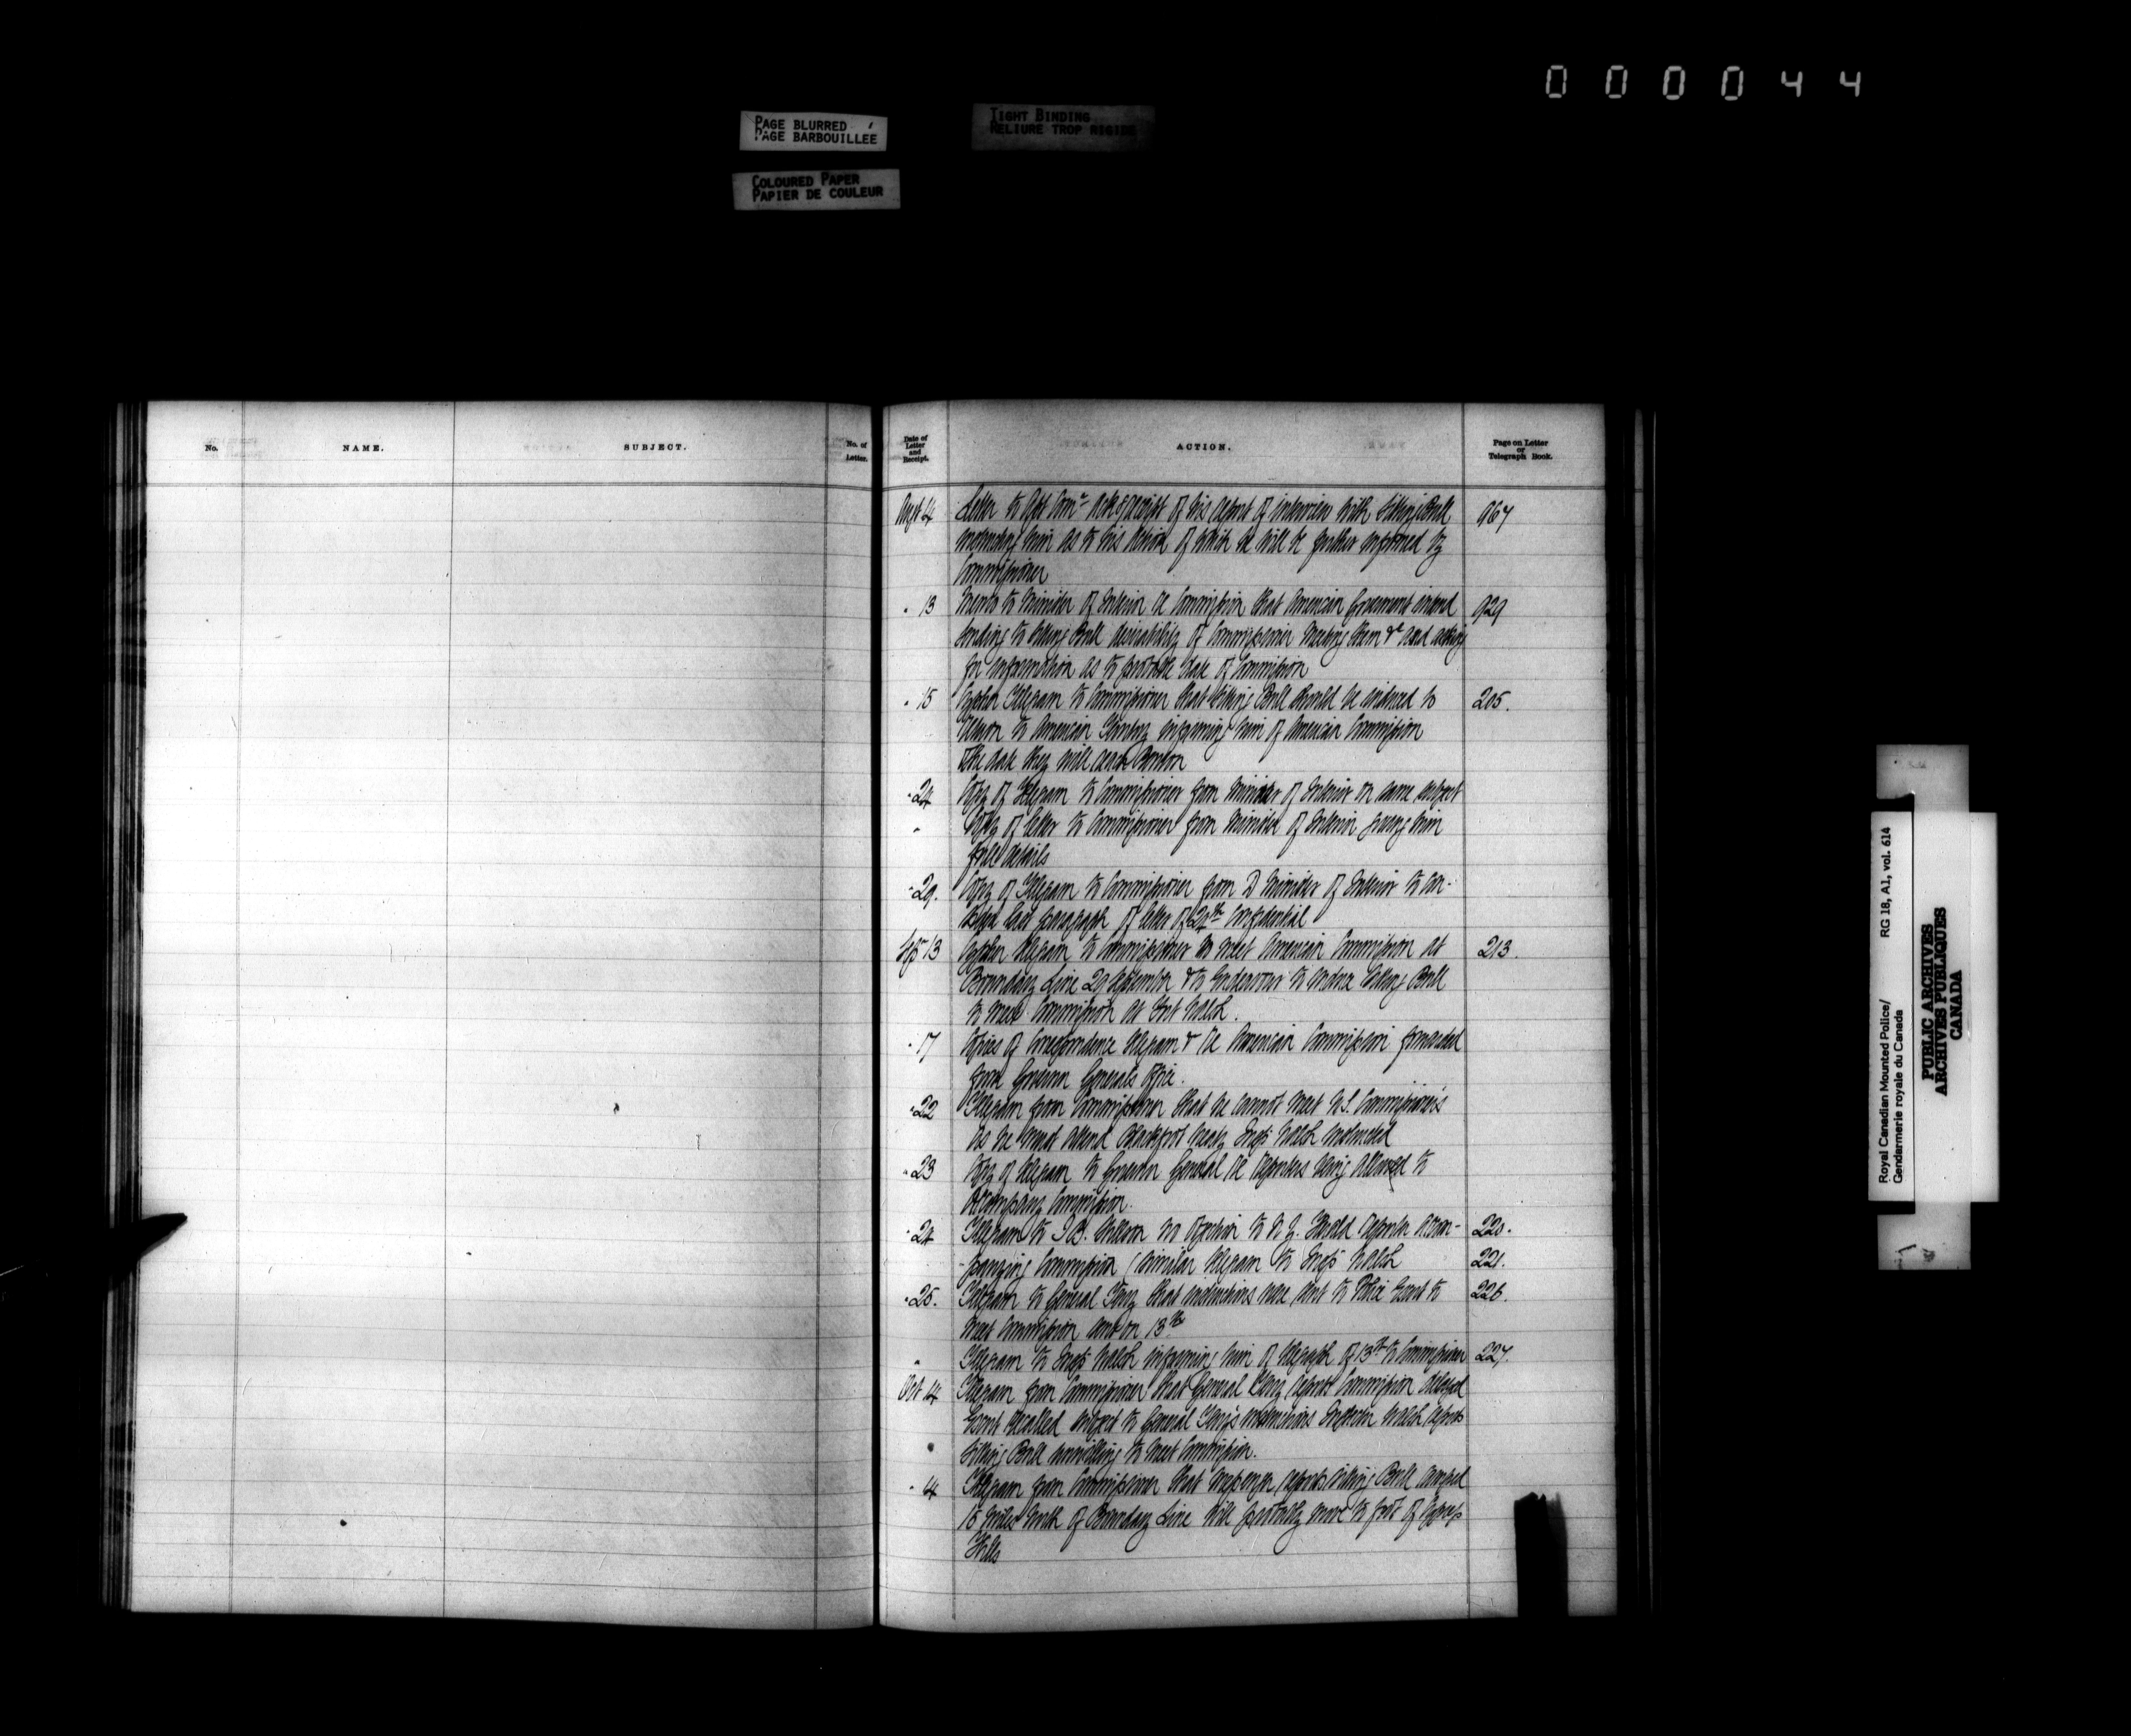 000044
PAGE BLURRED
PAGE BARBOUILLÉE
TIGHT BINDING
RELIURE TROP RIGIDE
COLOURED PAPER
PAPIER DE COULEUR
No.
NAME.
SUBJECT.
No. of
Letter.
Date of
Letter
and
Receipt.
ACTION.
Page on Letter
or
Telegraph Book.
Augt 4 Letter to Asst Comr receipt of his report of interview with Sitting Bull 967
instructing him as to his action of which he will be further informed by
Commissioner
" 13 Memo to Minister of Interior re Commission that American Government intend 929
sending to Sitting Bull desirability of Commissioner meeting them &c and asking
for information as to probable date of Commission
" 15 Cypher Telegram to Commissioner that Sitting Bull should be induced to 205.
return to American Territory informing him of American Commission
& the date they will reach Benton
" 24 Copy of Telegram to Commissioner from Minister of Interior on same subject
" Copy of letter to Commissioner from Minister of Interior giving him
full details
" 29. Copy of Telegram to Commissioner from D Minister of Interior to con-
sider last paragraph of letter of 24th Confidential
Sep 13 Cypher Telegram to Commissioner to meet American Commission at 213.
Boundary Line 29 September & to endeavour to induce Sitting Bull
to meet Commission at Fort Walsh.
" 17 Copies of Correspondence Telegram & re American Commission forwarded
from Governor General's Office.
" 22 Telegram from Commissioner that he cannot meet U.S. Commissioners
as he must attend Blackfoot treaty Inspr Walsh instructed
" 23 Copy of Telegram to Governor General re Reporters being allowed to
accompany Commission.
" 24 Telegram to no objection to N.Y. Herald reporter accom- 220.
panying Commission / similar telegram to Inspr Walsh 221.
" 25. Telegram to General Terry that instructions were sent to Police Escort to 226.
meet Commission sent on 13th
" Telegram to Inspr Walsh informing him of telegraph of 13th to Commissioner 227.
Oct 4 Telegram from Commissioner that General Terry reports Commission delayed
Escort recalled subject to General Terry's instructions Inspector Walsh reports
Sitting Bull unwilling to meet Commission.
" 4 Telegram from Commissioner that messenger reports Sitting Bull camped
15 miles north of Boundary Line will probably move to foot of Cypress
Hills
Royal Canadian Mounted Police/
Gendarmerie royale du Canada
RG 18, A1, vol. 614
PUBLIC ARCHIVES
ARCHIVES PUBLIQUES
CANADA